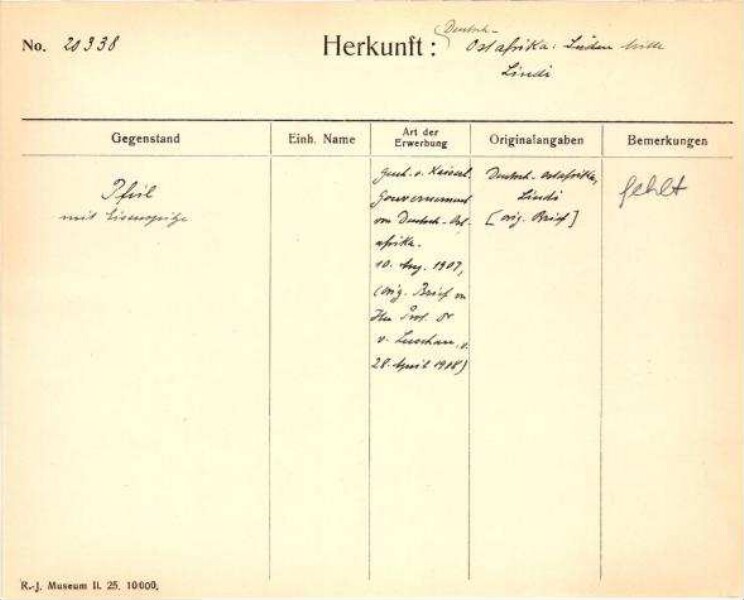 No. 20338
Herkunft: Deutsch-
Ostafrika: Süden
Lindi
Gegenstand Einh. Name Art der Erwerbung Originalangaben Bemerkungen
Pfeil
mit Eisenspitze
Gesch. v. Kaiserl.
Gouvernement
von Deutsch-Ost-
afrika.
10. Aug. 1907,
(orig. Brief von
Hrn Prof. Dr
v. Luschan, v.
28. April 1908)
Deutsch-Ostafrika,
Lindi
[orig. Brief]
fehlt
R.-J. Museum II. 25. 10000.